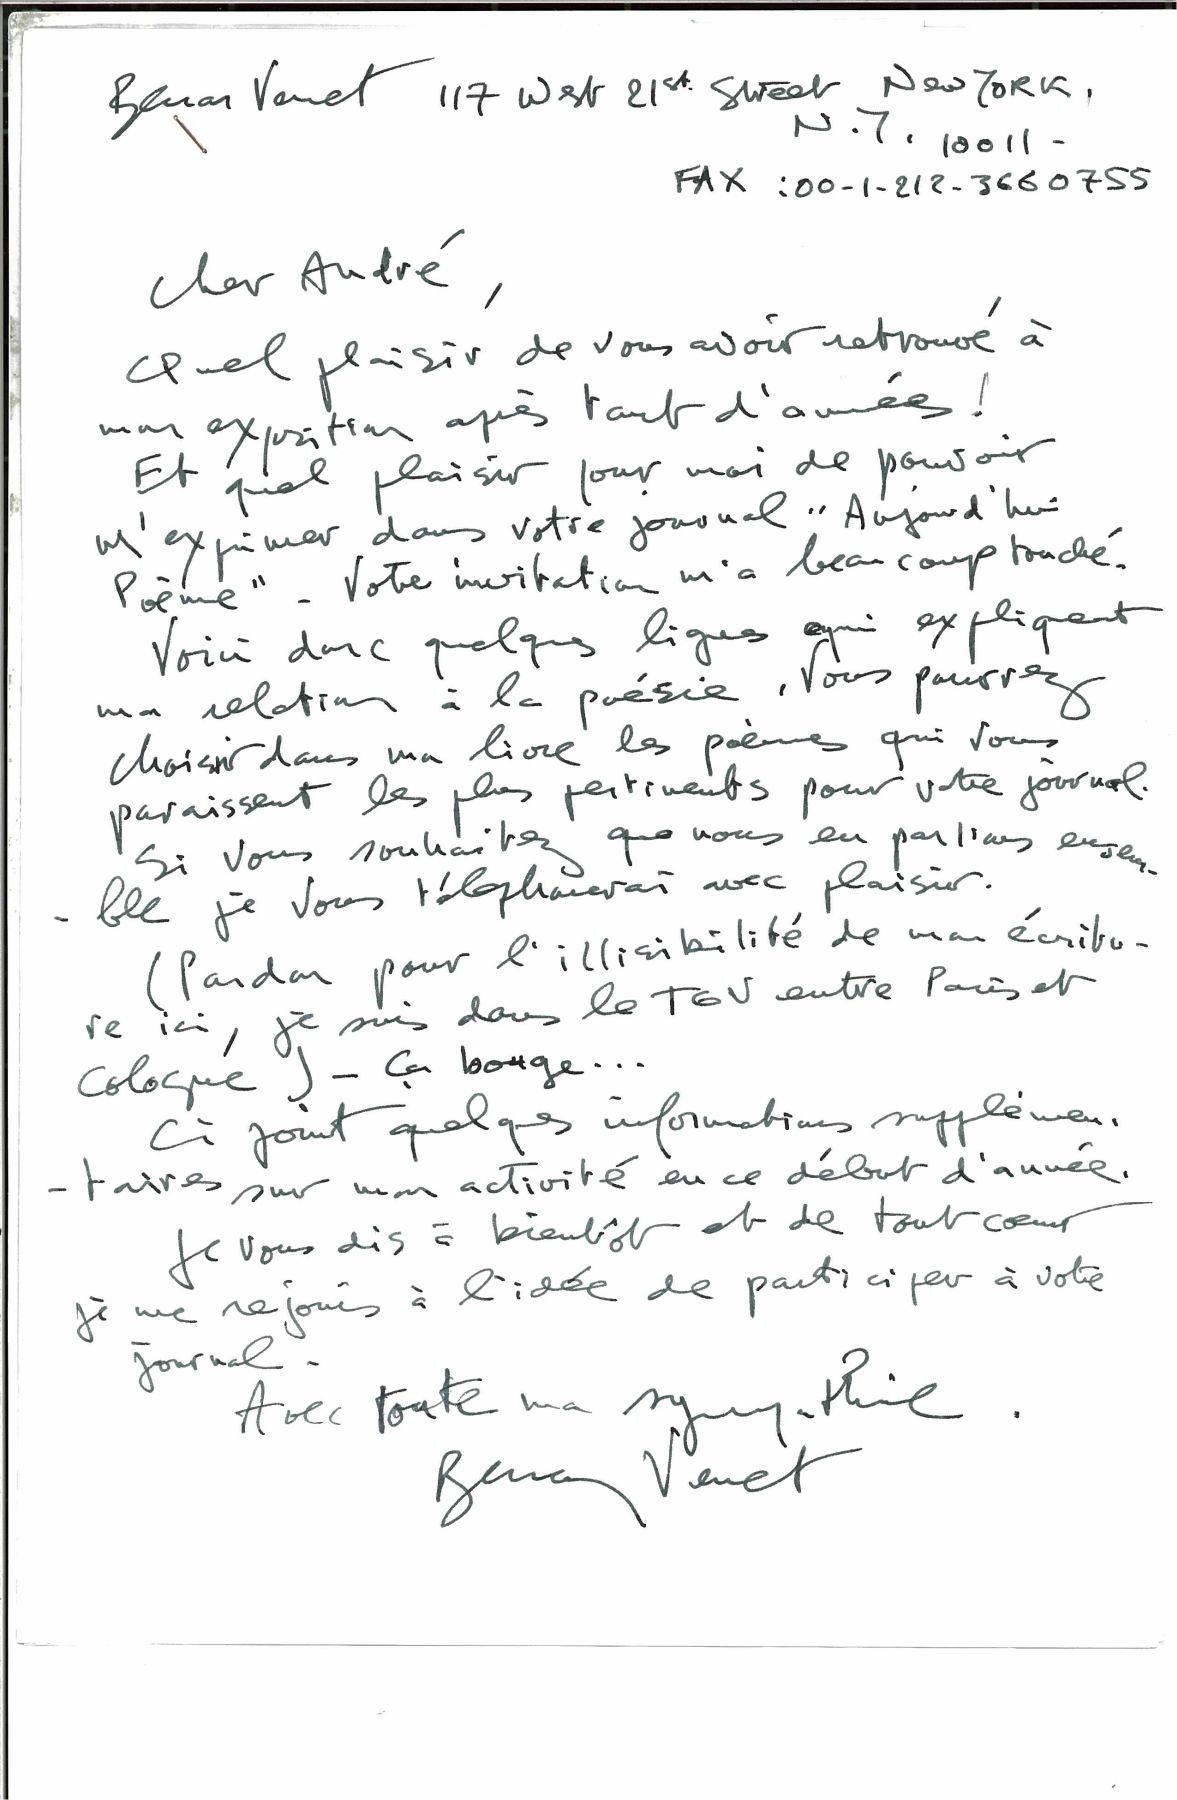 Bernar Venet 117 West 21st. Street New YORK,
N.Y. 10011 -
FAX : 00-1-212-3660755
Cher André,
Quel plaisir de vous avoir retrouvé à
mon exposition après tant d'années !
Et quel plaisir pour moi de pouvoir
m'exprimer dans votre journal "Aujourd'hui
Poème" - Votre invitation m'a beaucoup touché.
Voici donc quelques lignes qui expliquent
ma relation à la poésie. Vous pourrez
choisir dans mon livre les poèmes qui vous
paraissent les plus pertinents pour votre journal.
Si vous souhaitez que nous en parlions ensem-
- ble je vous téléphonerai avec plaisir.
(Pardon pour l'illisibilité de mon écritu-
re ici, je suis dans le TGV entre Paris et
Cologne) - Ca bouge...
Ci joint quelques informations supplémen.
- taires sur mon activité en ce début d'année.
Je vous dis à bientôt et de tout coeur
je me rejouis à l'idée de participer à votre
journal -
Avec toute ma sympathie .
Bernar Venet